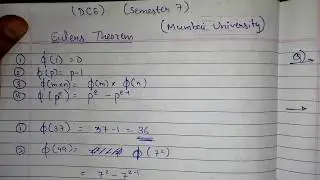 (DCE) (Semester 7)
(Mumbai University)
Eulers Theorem
① ϕ(1) = 0
② ϕ(p) = p-1
③ ϕ(m×n) = ϕ(m) × ϕ(n)
④ ϕ(p^e) = p^e - p^e-1
① ϕ(37) = 37-1 = 36
② ϕ(49) = ϕ(7²)
= 7² - 7²⁻¹